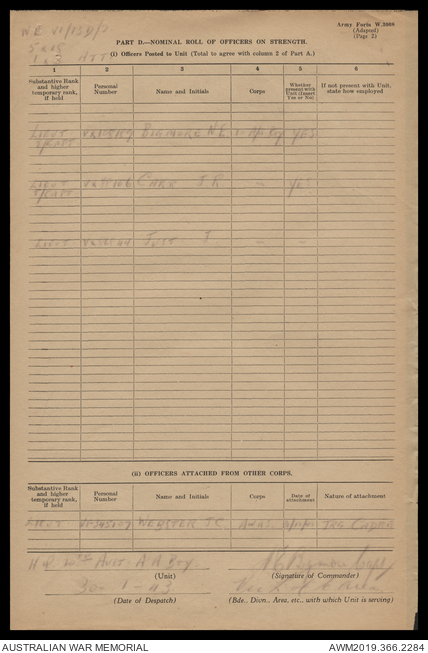 W.E. VI/13D/2
Army Form W.3008
(Adapted)
(Page 2)
5 x 18
1 x 3 ATT
PART D.—NOMINAL ROLL OF OFFICERS ON STRENGTH.
(i) Officers Posted to Unit (Total to agree with column 2 of Part A.)
1 2 3 4 5 6
Substantive Rank and higher temporary rank, if held
Personal Number
Name and Initials
Corps
Whether present with Unit (Insert Yes or No)
If not present with Unit, state how employed
LIEUT BIGMORE N.E. YES
T/CAPT
LIEUT CARR J.R. – YES
T/CAPT
LIEUT JUST T. – –
(ii) OFFICERS ATTACHED FROM OTHER CORPS.
Substantive Rank and higher temporary rank, if held
Personal Number
Name and Initials
Corps
Date of attachment
Nature of attachment
LIEUT WEBSTER T.C. TRG CADRE
H.Q. AUST. A A BTY
(Unit)
(Signature of Commander)
30 - 1 - 43
(Date of Despatch)
(Bde., Divn., Area, etc., with which Unit is serving)
AUSTRALIAN WAR MEMORIAL
AWM2019.366.2284